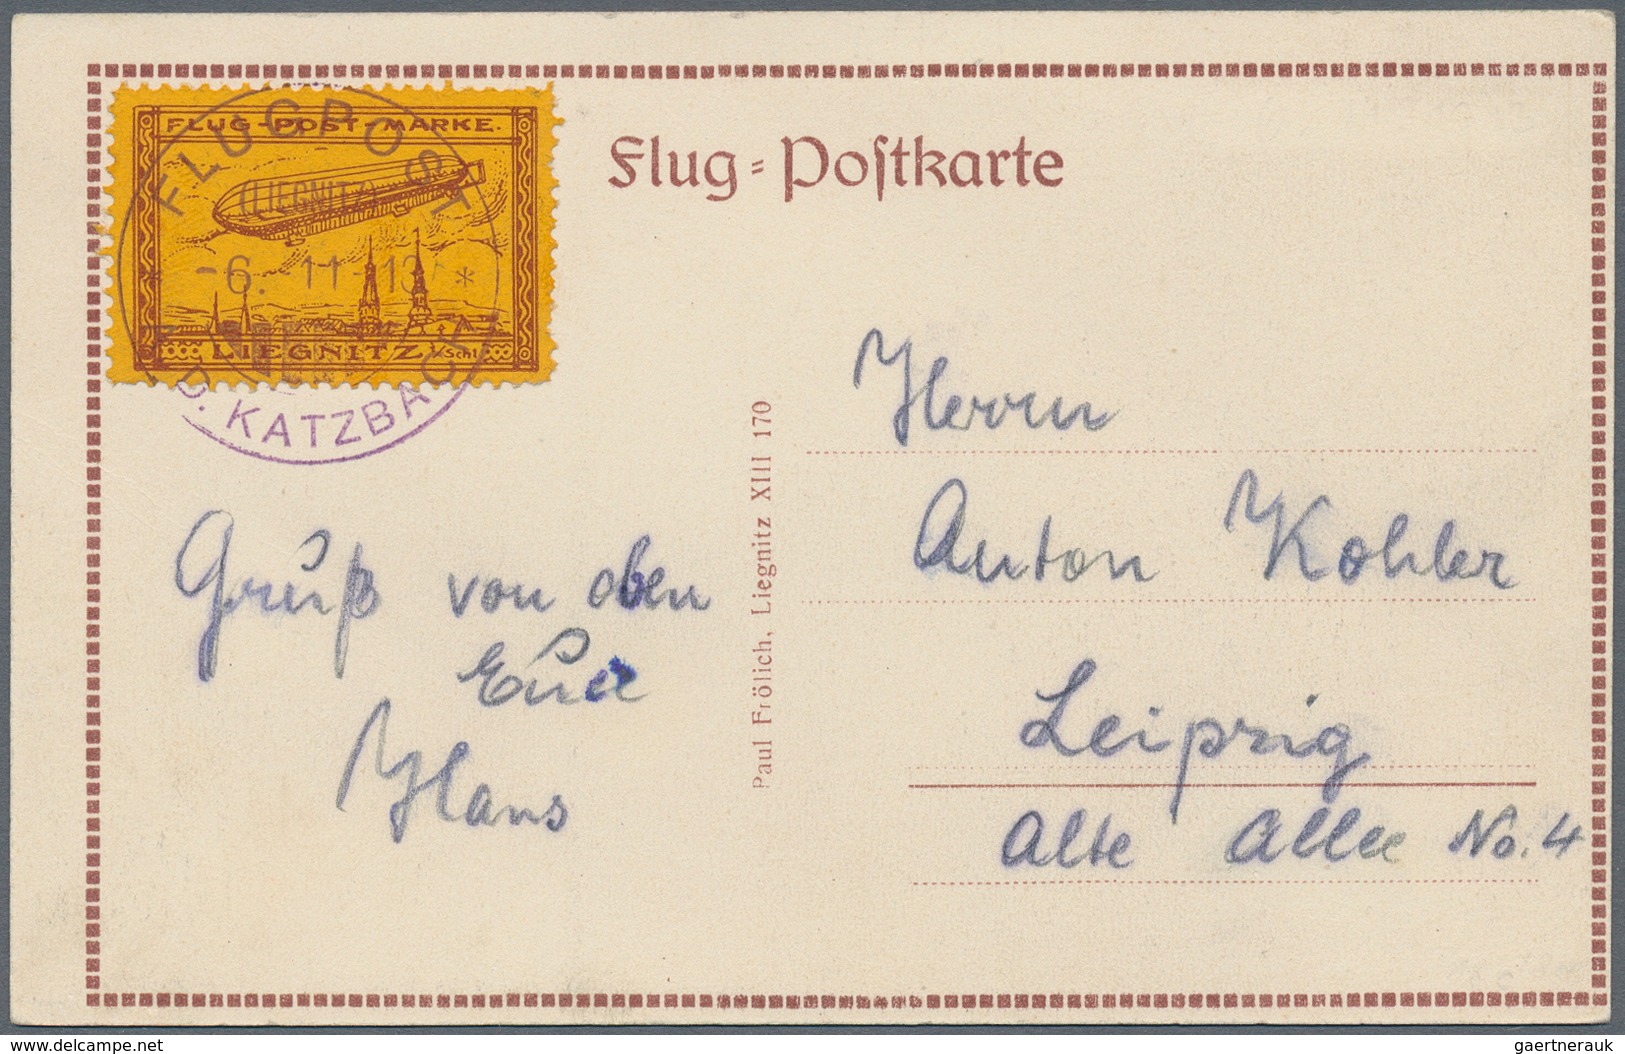 FLUG-POST-MARKE.
LIEGNITZ i/Schl.
FLUGPOST
(LIEGNITZ)
-6.-11-13
D. KATZBACH
Flug-Poſtkarte
Gruß von oben
Euer
Hans
Paul Frölich, Liegnitz XIII 170
Herrn
Anton Kohler
Leipzig
Alte Allee No. 4
www.delcampe.net
gaertnerauk